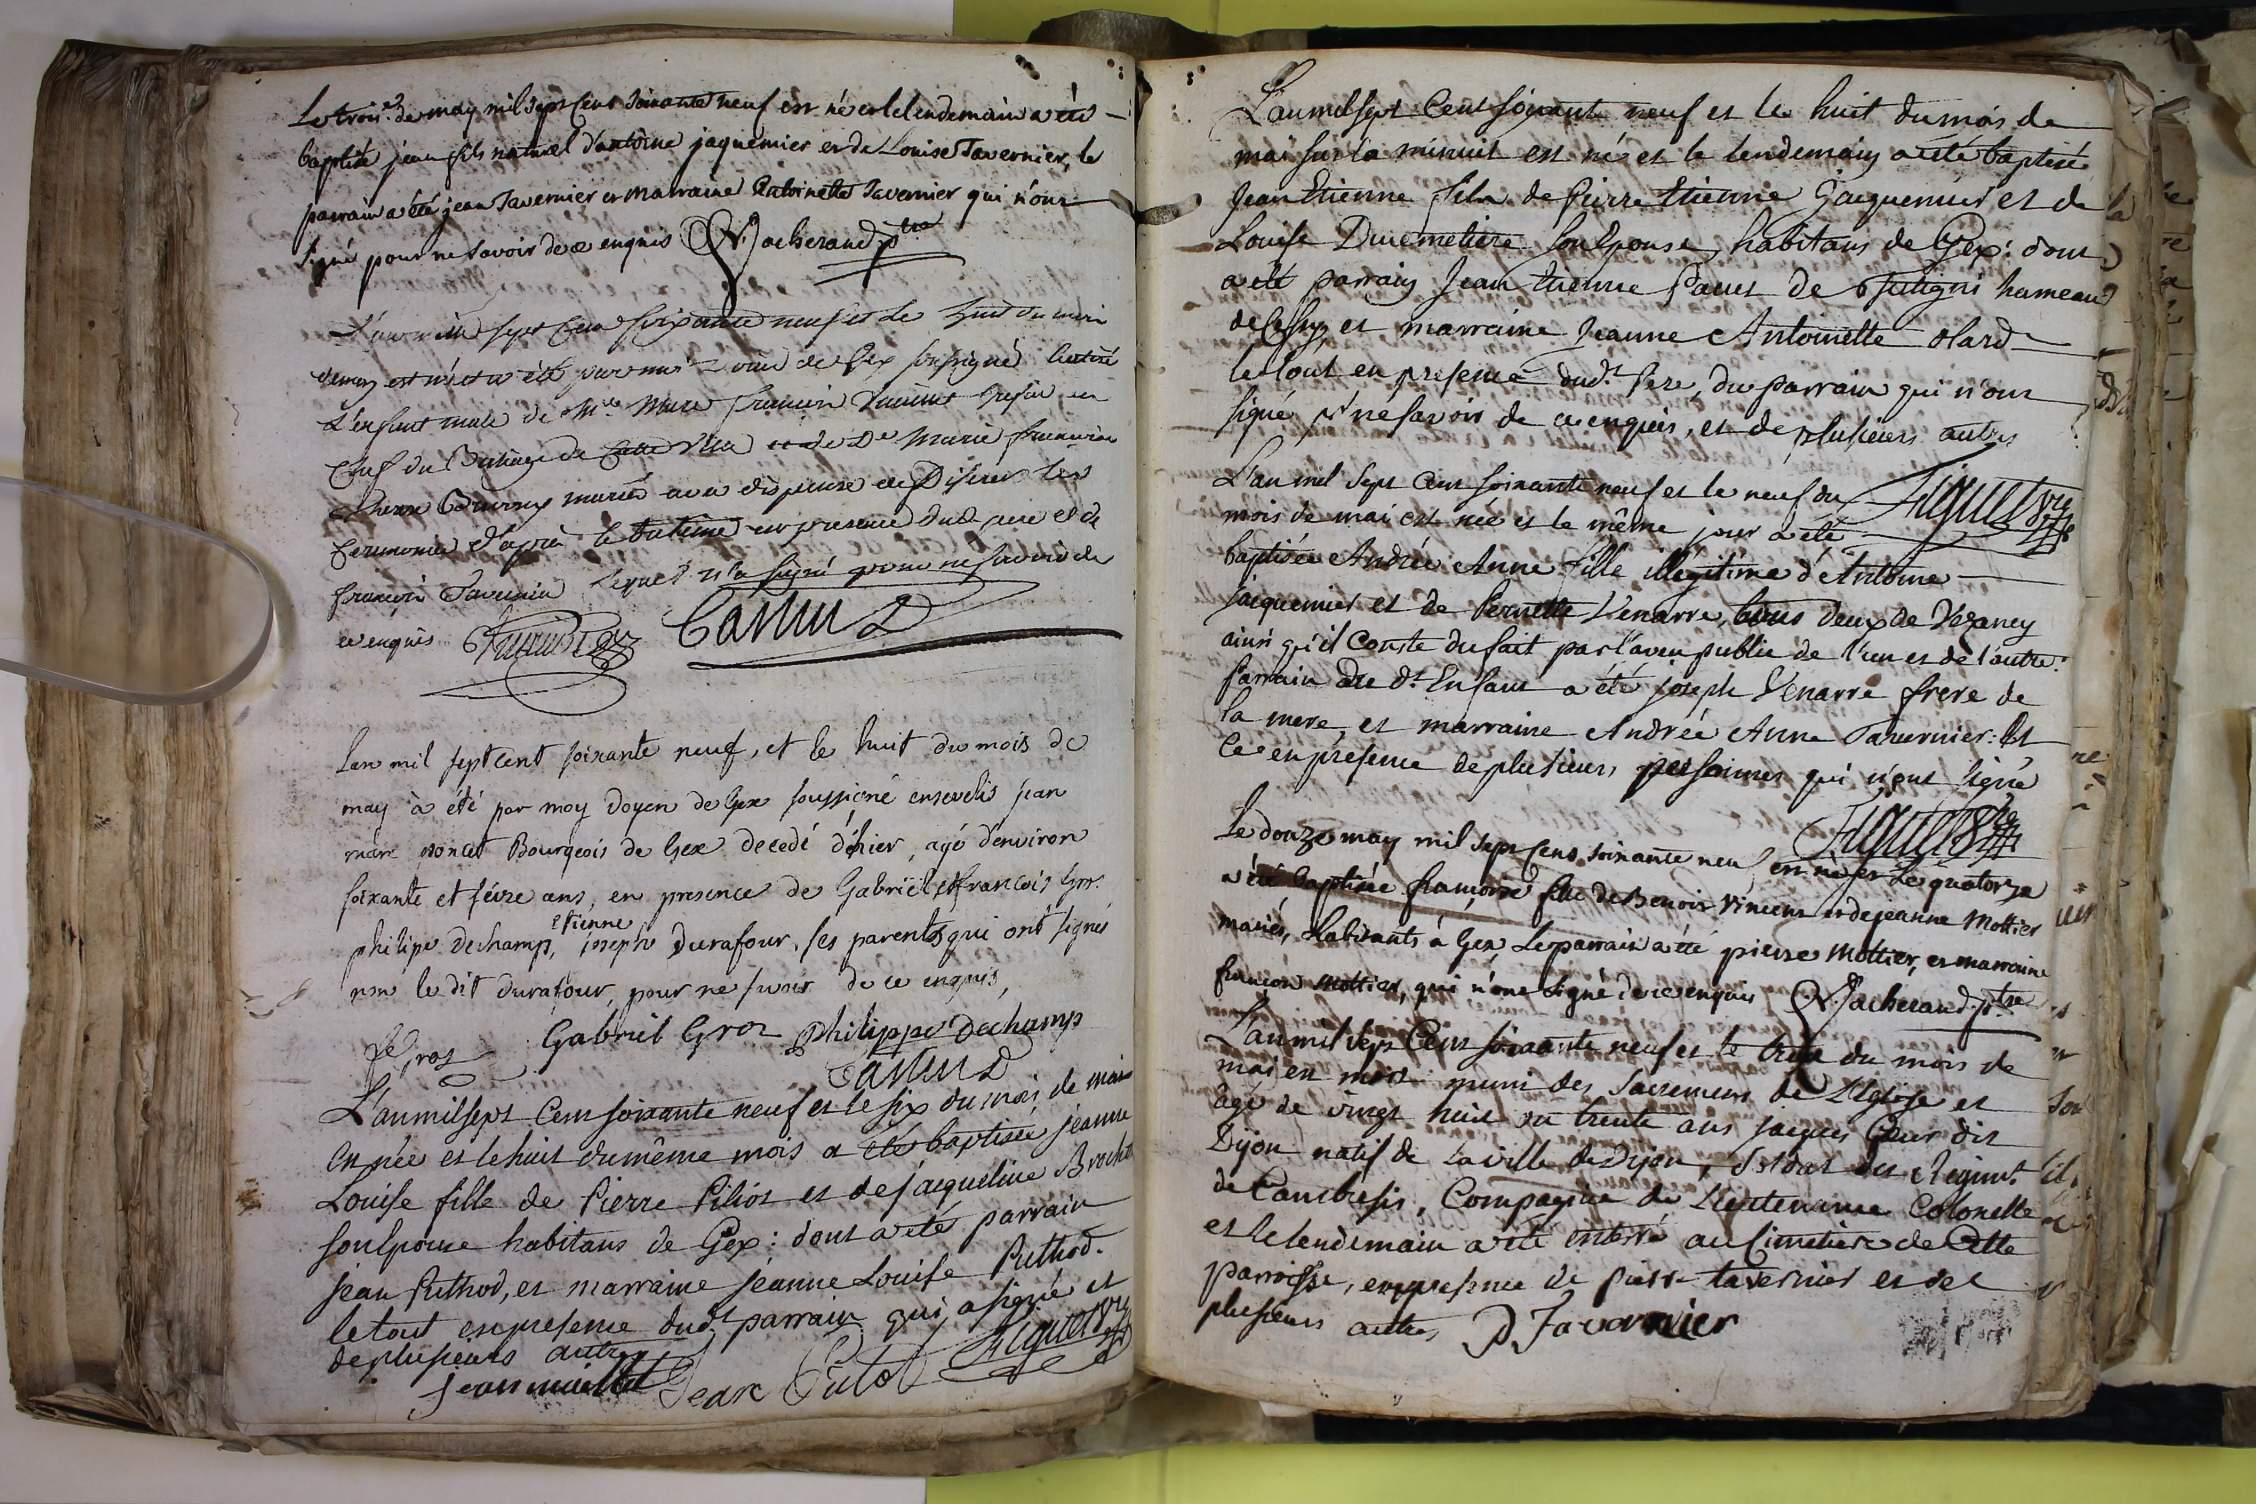 Le trois.e de may mil sept cent soixante neuf est né et le lendemain a été
baptisé jean fils naturel d'antoine jaquemier et de Louise Tavernier, le
parrain a été jean Tavernier et marraine Antoinette Tavernier qui n'ont
signé pour ne savoir de ce enquis N. Vacherand p.tre
L'an mille sept Cent soixante neuf et le huit du mois
de may est né et a été par moi curé de Gex soussigné
L'enfant male de
Chef du de Cette Ville et de D.e Marie françoise
mariés avec dispense de Differer les
Ceremonies d'après le batême en presence dud. pere et de
françois Tavernier lequel n'a signé pour ne savoir de
ce enquis Castin D
Lan mil sept cent soixante neuf, et le huit du mois de
may à été par moy doyen de Gex soussigné ensevelis jean
marc poncet Bourgeois de Gex decedé d'hier, agé d'environ
soixante et seize ans, en presence de Gabriël et françois Gros.
philipe dechamp, etienne joseph Durafour, ses parents qui ont signés
non le dit durafour, pour ne savoir de ce enquis,
f Gros Gabriel Gros philippe Dechamp
Castin D
L'an mil sept Cent soixante neuf et le six du mois de mai
est née et le huit du même mois a été baptisée jeanne
Louise fille de Pierre Piliot et de jacqueline Brochet
son Epouse habitans de Gex: dont a été parrain
jean Puthod, et marraine jeanne Louise Puthod.
le tout en presence dud.t parrain qui a signé et
de plusieurs autres
jean Jean Putod Fiquet
L'an mil sept Cent soixante neuf et le huit du mois de
mai sur la minuit est né et le lendemain a été baptisé
Jean Etienne fils de Pierre Etienne Jacquemier et de
Louise Ducemetiere son Epouse, habitans de Gex: dont
a été parrain Jean Etienne Panet de Tutigni hameau
de Cessy, et marraine Jeanne Antoinette Olard
le tout en presence dud.t Pere, du parrain qui n'ont
signé p.r ne savoir de ce enquis, et de plusieurs autres
L'an mil sept Cent soixante neuf et le neuf du Fiquet
mois de mai est née et le même jour a été
baptisée Andrée Anne fille illégitime d'Antoine
Jacquemier et de Pernette Venarre, tous deux de Vezancy
ainsi qu'il Conste du fait par l'aveu public de l'un et de l'autre.
Parrain du d.t Enfant a été joseph Venarre frere de
la mere, et marraine Andrée Anne Tavernier: Et
Ce en presence de plusieurs personnes qui n'ont signé
Fiquet
Le douze may mil sept cens soixante neuf est née et Le quatorze
a été baptisée françoise fille de Benoit Vincent et de jeanne Mottier
mariés, Habitants à Gex, Le parrain a été pierre Mottier, et marraine
françoise Mottier, qui n'ont signé de ce enquis N. Vacherand p.tre
L'an mil sept Cent soixante neuf et le treize du mois de
mai est mort muni des Sacremens de L'Eglise et
âgé de vingt huit ou trente ans jacques Cœur dit
Dijon natif de la ville de Dijon, Soldat du Regim.t
de Cambresis, Compagnie de Lieutenance Colonelle
et le lendemain a été enterré au Cimetière de Cette
parroisse, en presence de pierre tavernier et de
plusieurs autres P Tavernier